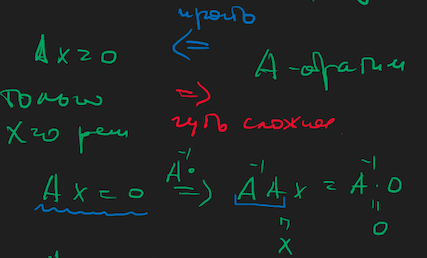 просто
Ax=0 <= A-обратим
только =>
x=0 реш чуть сложнее
Ax=0 A⁻¹· => A⁻¹Ax = A⁻¹·0
" "
x 0